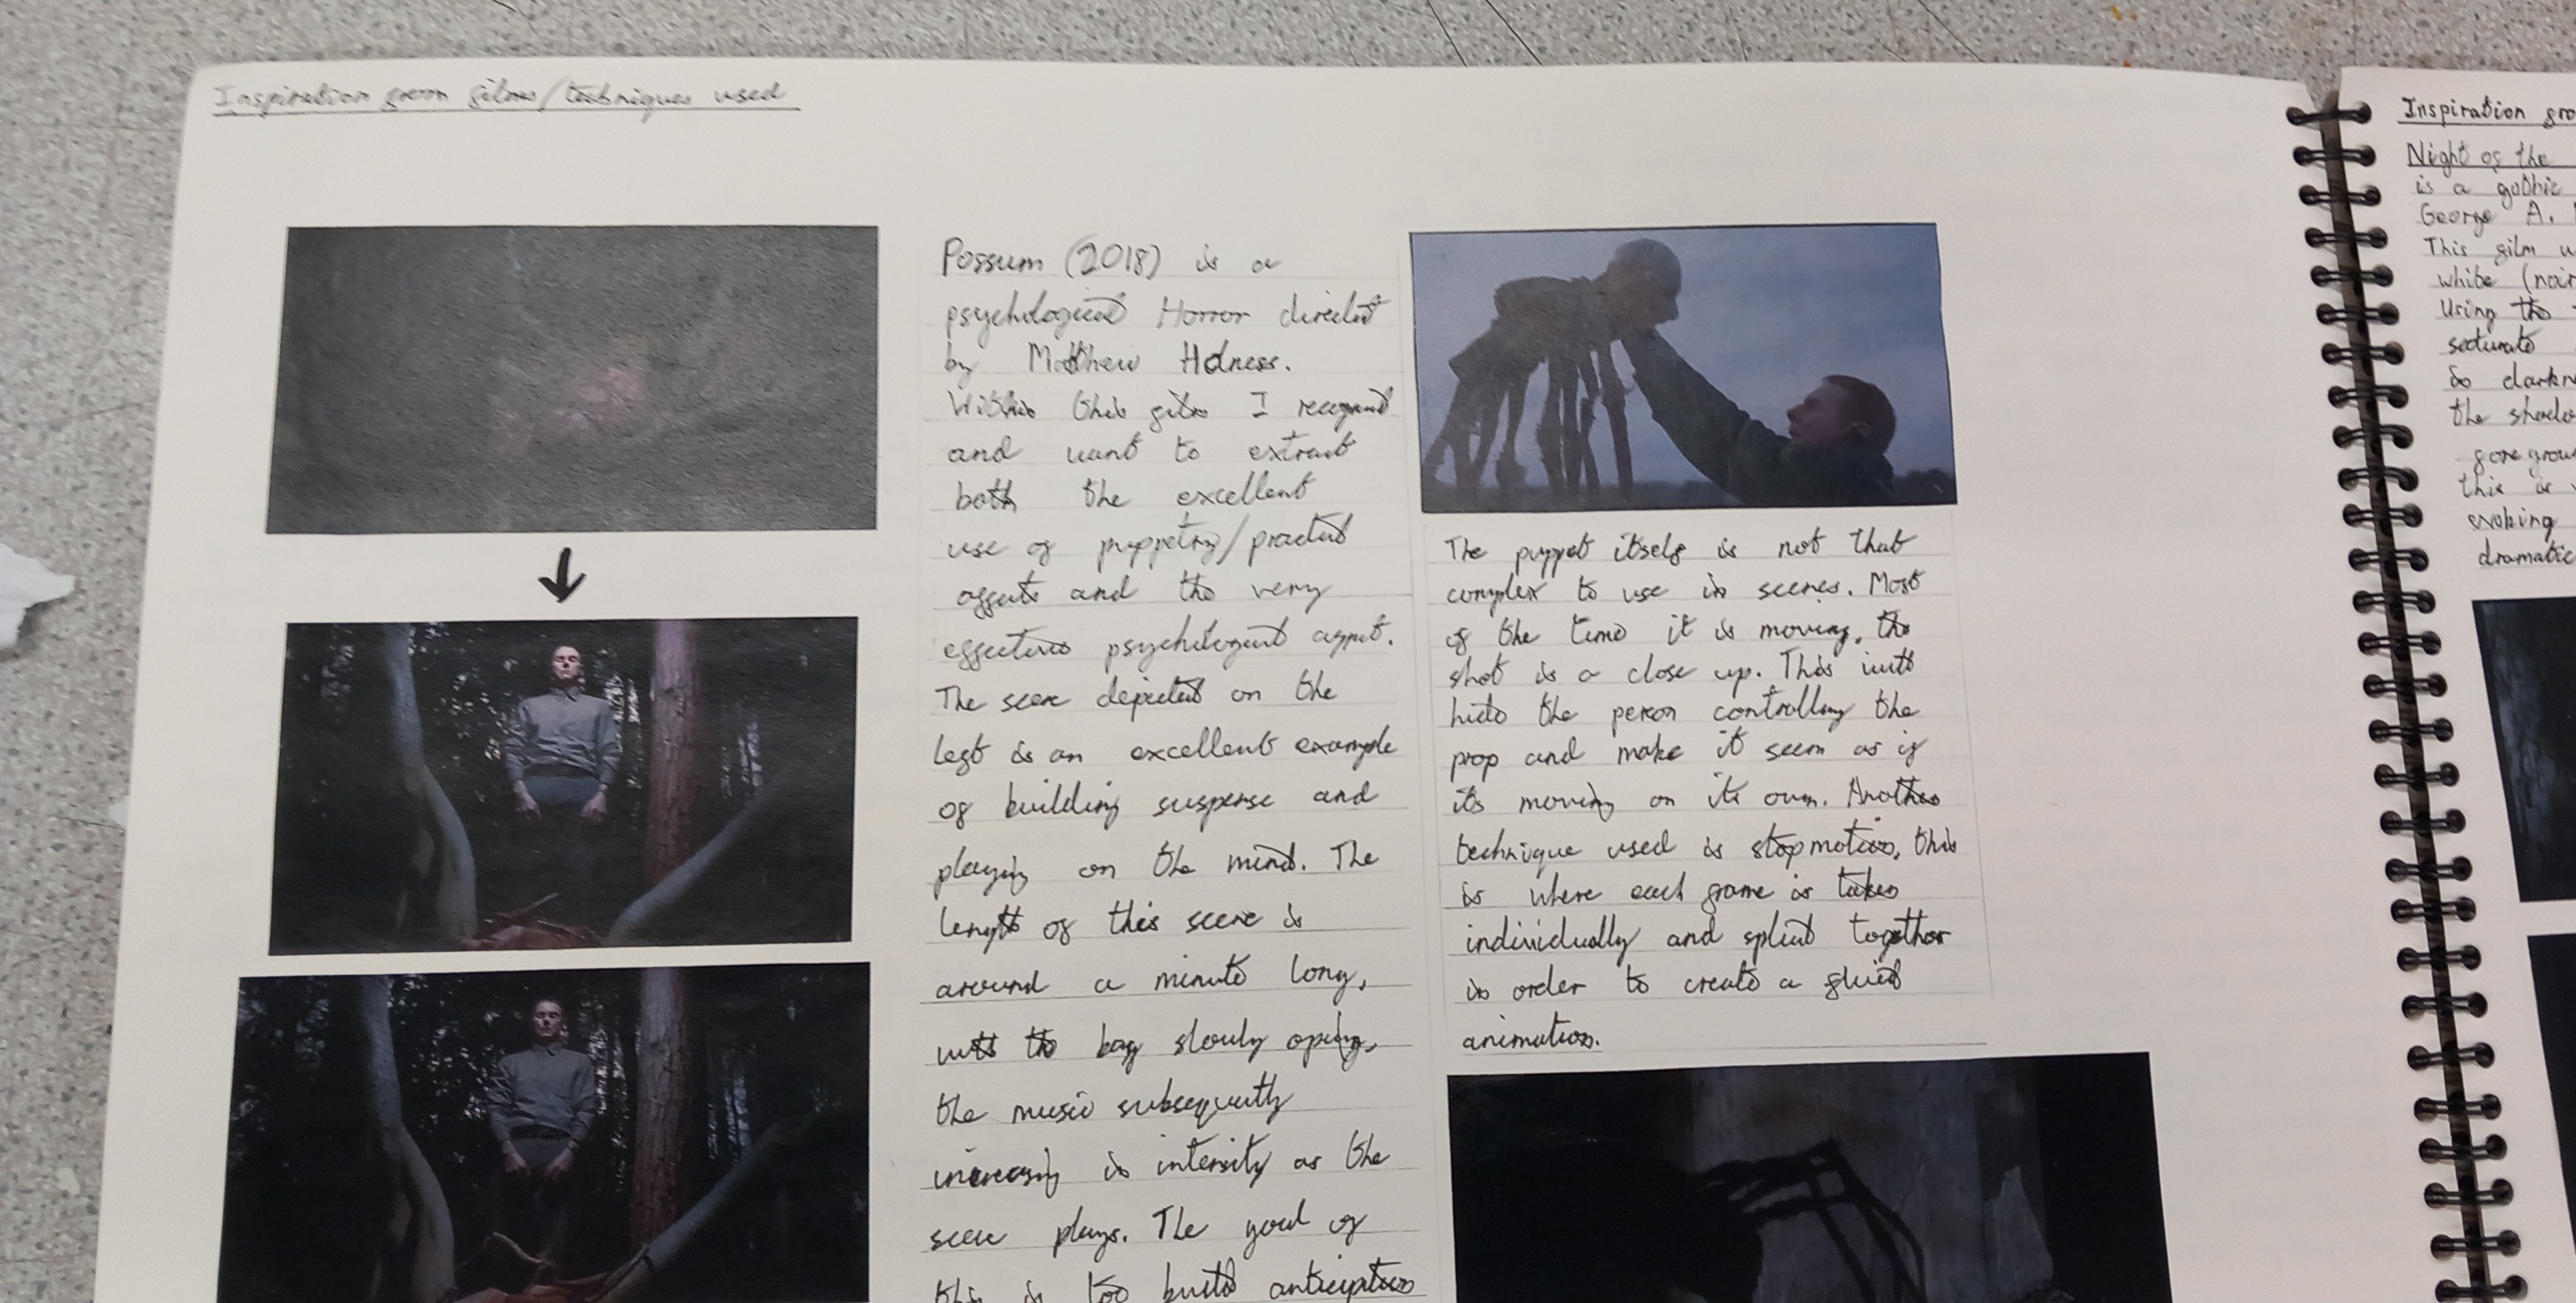 Inspiration from films/techniques used
Possum (2018) is a
psychological Horror directed
by Matthew Holness.
Within this film I recognised
and want to extract
both the excellent
use of puppetry/practical
effects and the very
effective psychological aspect.
The scene depicted on the
left is an excellent example
of building suspense and
playing on the mind. The
length of this scene is
around a minute long,
with the bag slowly opening,
the music subsequently
increasing in intensity as the
scene plays. The goal of
this is too build anticipation
The puppet itself is not that
complex to use in scenes. Most
of the time it is moving, the
shot is a close up. This will
hide the person controlling the
prop and make it seem as if
its moving on its own. Another
technique used is stop motion, this
is where each frame is taken
individually and spliced together
in order to create a fluid
animation.
Inspiration fro
Night of the
is a gothic
George A.
This film w
white (noir
Using the
saturate
so darkn
the shado
foregrou
this is
evoking
dramatic